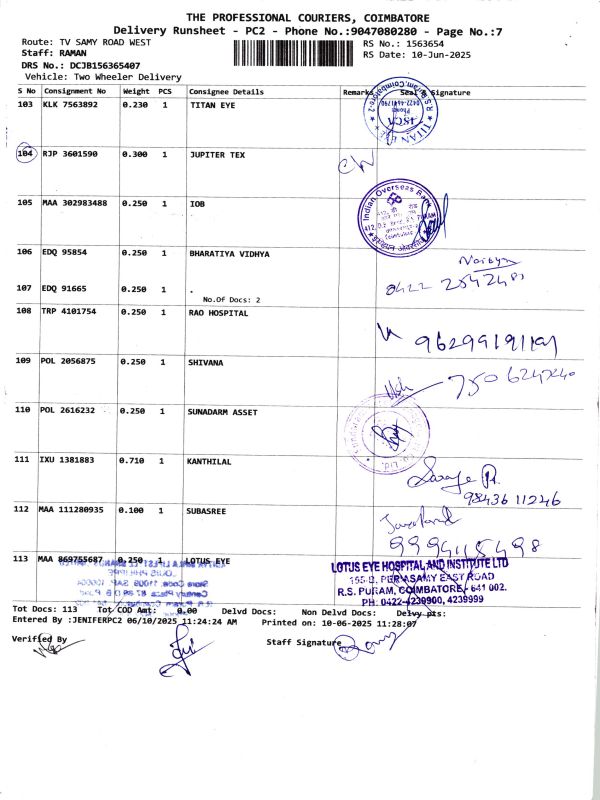 THE PROFESSIONAL COURIERS, COIMBATORE
Delivery Runsheet - PC2 - Phone No.:9047080280 - Page No.:7
Route: TV SAMY ROAD WEST
RS No.: 1563654
Staff: RAMAN
RS Date: 10-Jun-2025
DRS No.: DCJB156365407
Vehicle: Two Wheeler Delivery
S No Consignment No Weight PCS Consignee Details Remarks Seal & Signature
103 KLK 7563892 0.230 1 TITAN EYE
104 RJP 3601590 0.300 1 JUPITER TEX
105 MAA 302983488 0.250 1 IOB
Indian Overseas Bank
106 EDQ 95854 0.250 1 BHARATIYA VIDHYA
107 EDQ 91665 0.250 1 .
No.Of Docs: 2
0422
108 TRP 4101754 0.250 1 RAO HOSPITAL
109 POL 2056875 0.250 1 SHIVANA
110 POL 2616232 0.250 1 SUNADARM ASSET
111 IXU 1381883 0.710 1 KANTHILAL
98436 11246
112 MAA 111280935 0.100 1 SUBASREE
9994115498
113 MAA 869755687 0.250 1 LOTUS EYE
LOTUS EYE HOSPITAL AND INSTITUTE LTD
155-B, PERIYASAMY EAST ROAD
R.S. PURAM, COIMBATORE - 641 002.
PH: 0422-4239900, 4239999
Tot Docs: 113 Tot COD Amt: 0.00 Delvd Docs: Non Delvd Docs: Delvy pts:
Entered By :JENIFERPC2 06/10/2025 11:24:24 AM Printed on: 10-06-2025 11:28:07
Verified By
Staff Signature